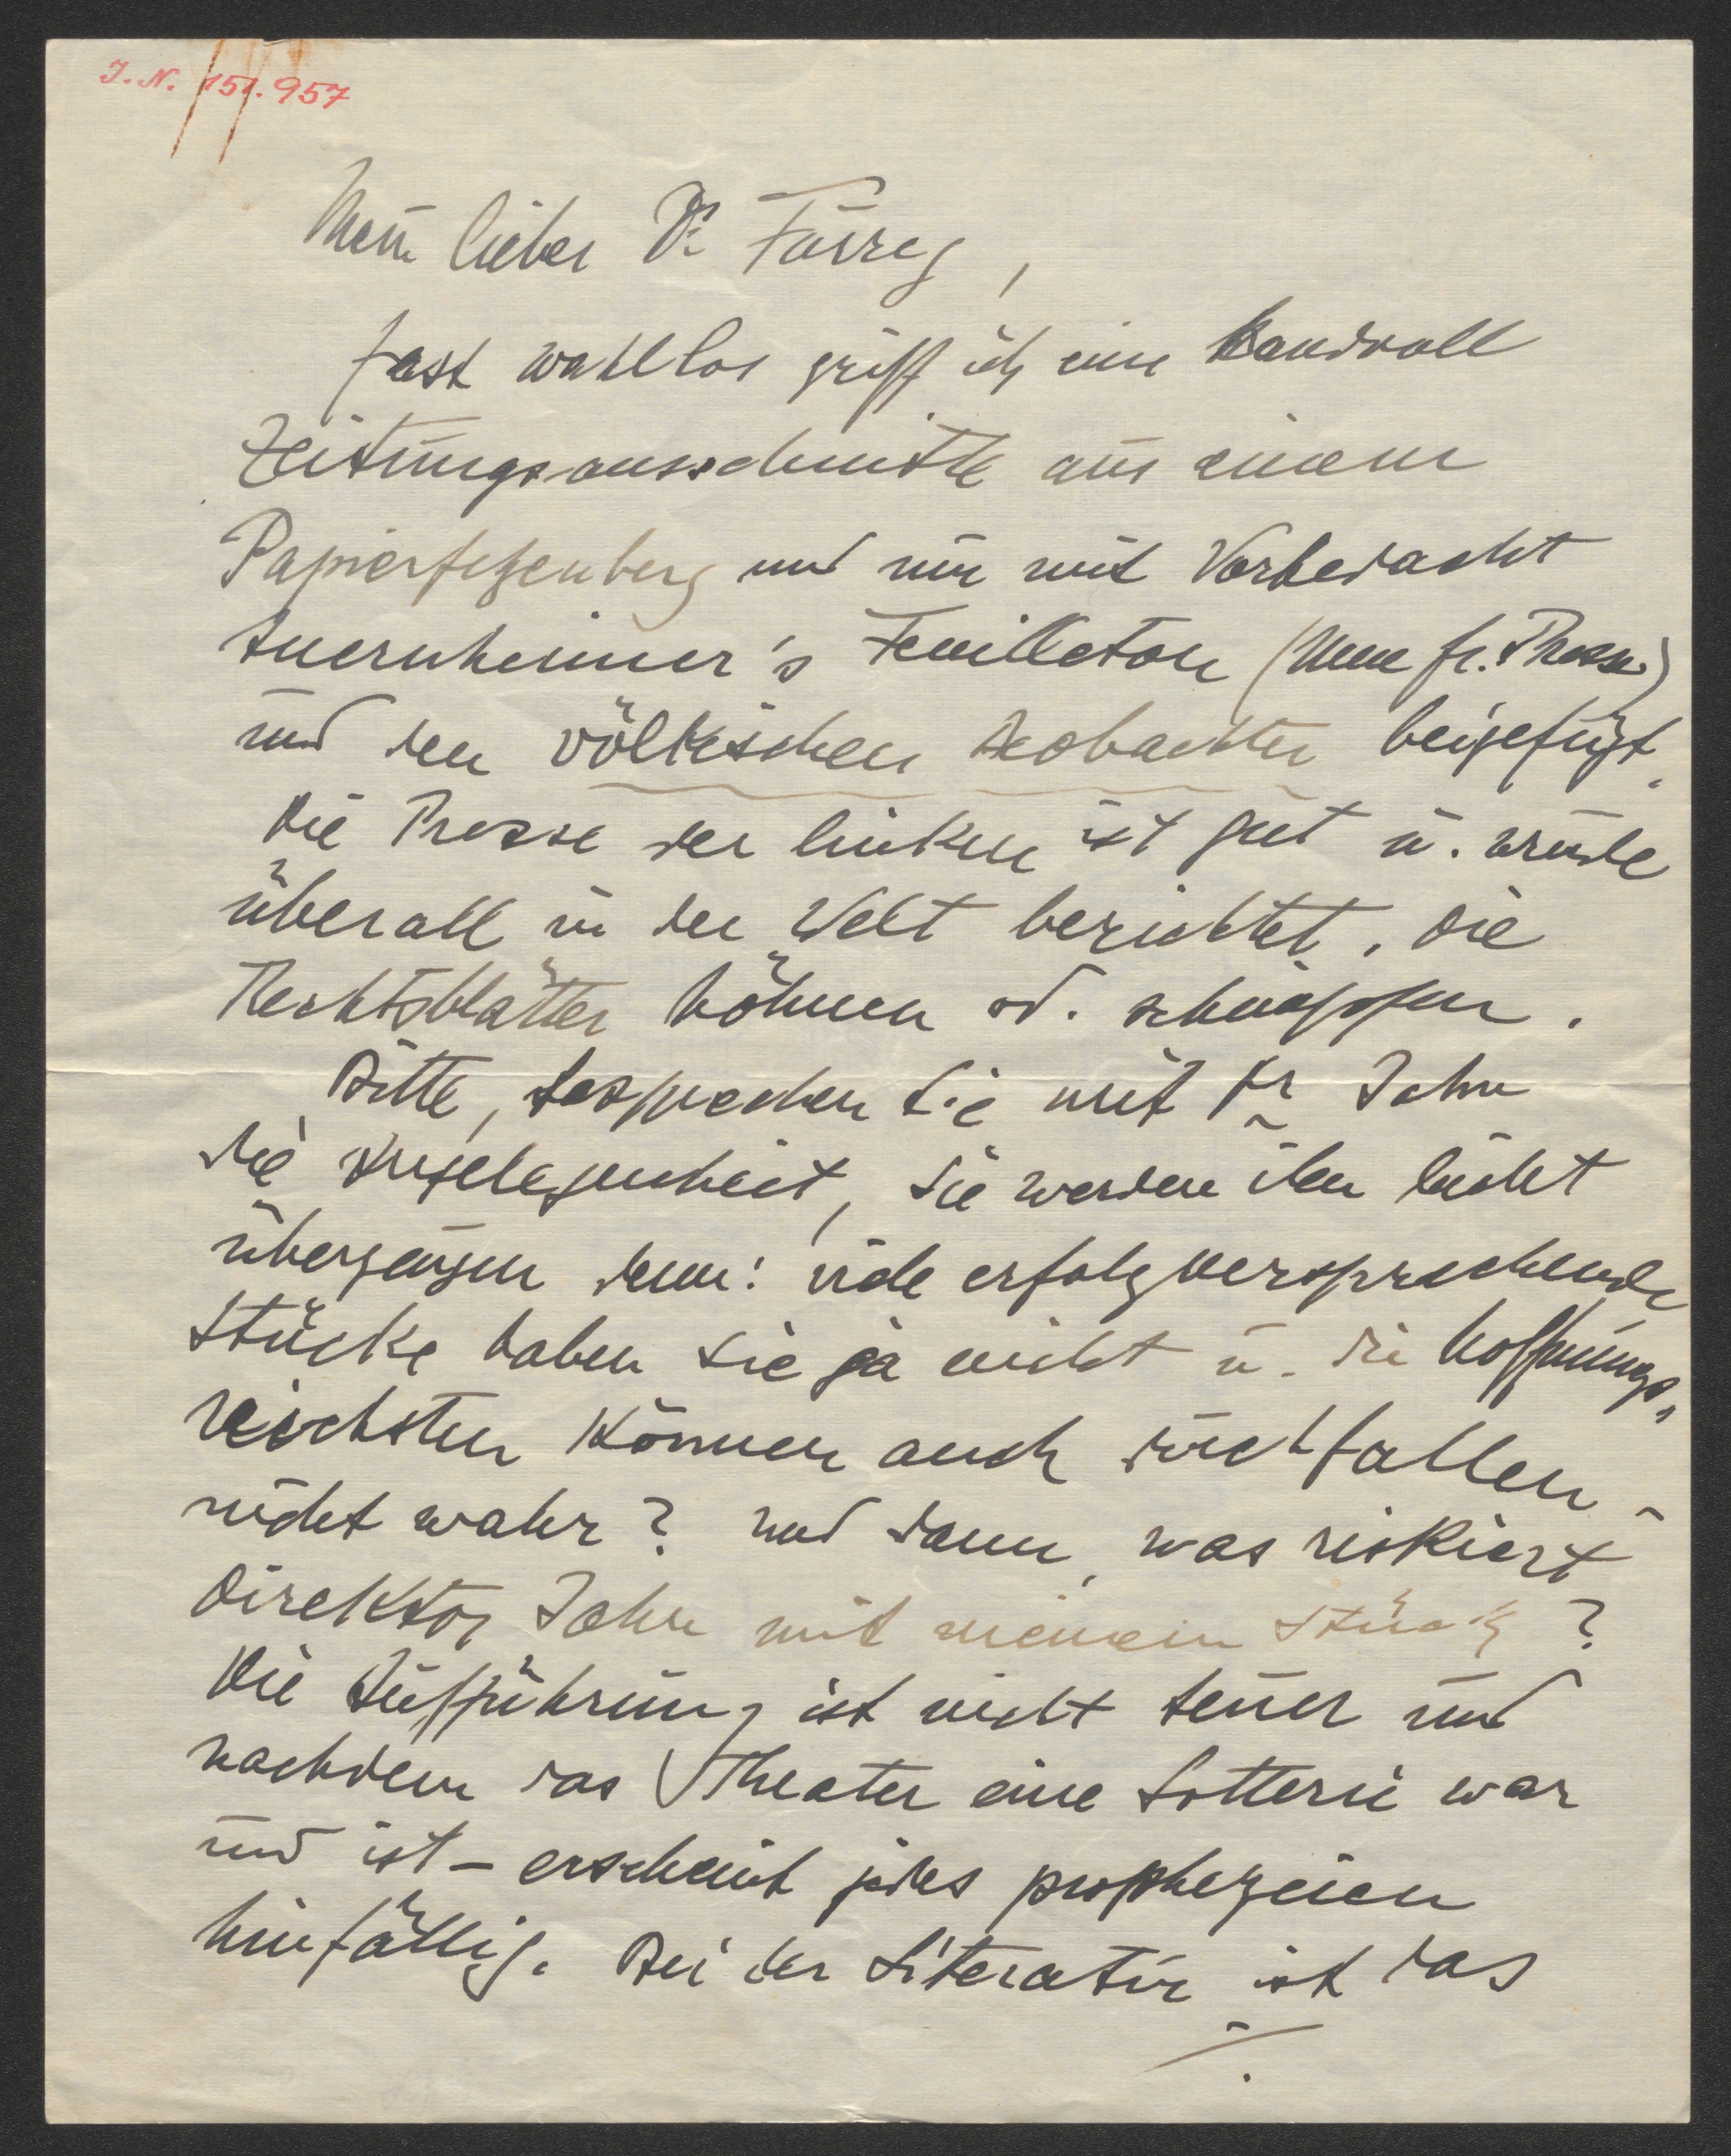 J. N. 151.957
Mein lieber Dr Fürreg,
fast wahllos griff ich eine Handvoll
Zeitungsausschnitte aus einem
Papierfetzenberg und nur mit Vorbedacht
Auernheimer's Feuilleton (Neue fr. Presse)
und den völkischen Beobachter beigefügt.
Die Presse der linken ist gut u. wurde
überall in der Welt berichtet. Die
Rechtsblätter höhnen od. schnappen.
Bitte, besprechen Sie mit Hr Jahn
die Angelegenheit, Sie werden ihn leicht
überzeugen denn: viele erfolgversprechende
Stücke haben Sie ja nicht u. die hoffnungs„
reichsten können auch durchfallen –
nicht wahr? Und dann, was riskiert
Direktor Jahn mit meinem Stück?
Die Aufführung ist nicht teuer und
nachdem das Theater eine Lotterie war
und ist – erscheint jedes prophezeien
hinfällig. Bei der Literatur ist das